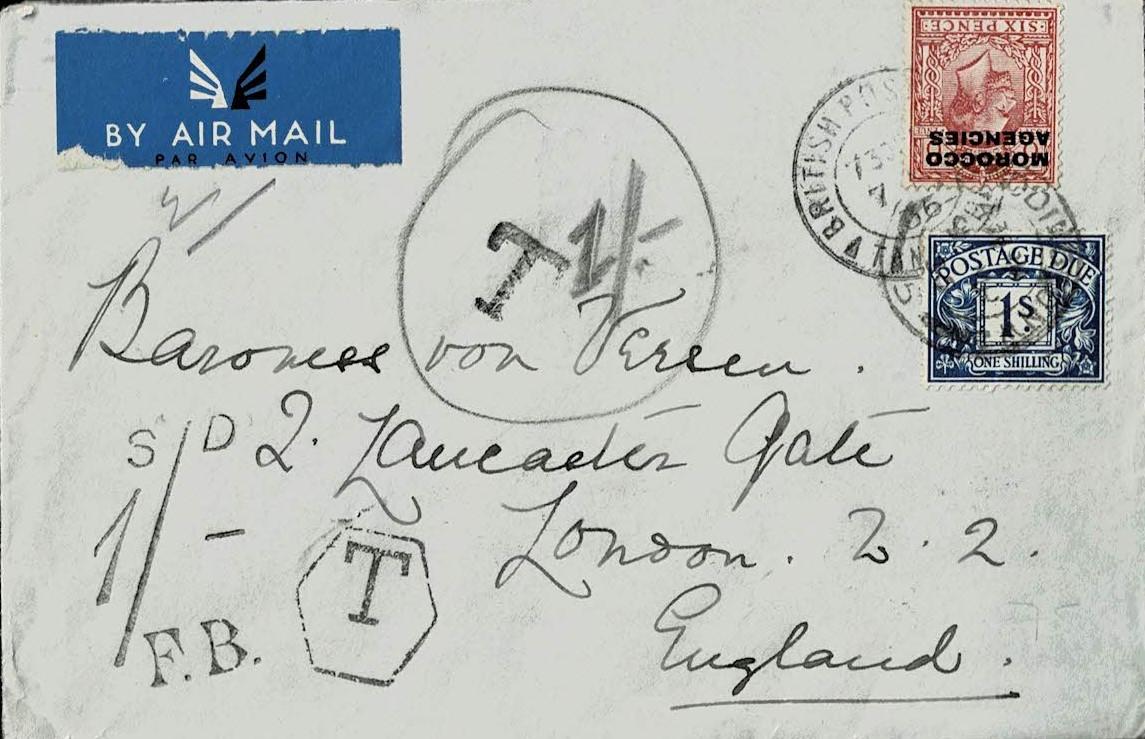 BY AIR MAIL
PAR AVION
SIX PENCE
MOROCCO
AGENCIES
BRITISH POS
POSTAGE DUE
1S.
ONE SHILLING
T 1/-
Baroness von Versen.
S/D 2. Lancaster Gate
1/-
London. W. 2.
T
F.B.
England.